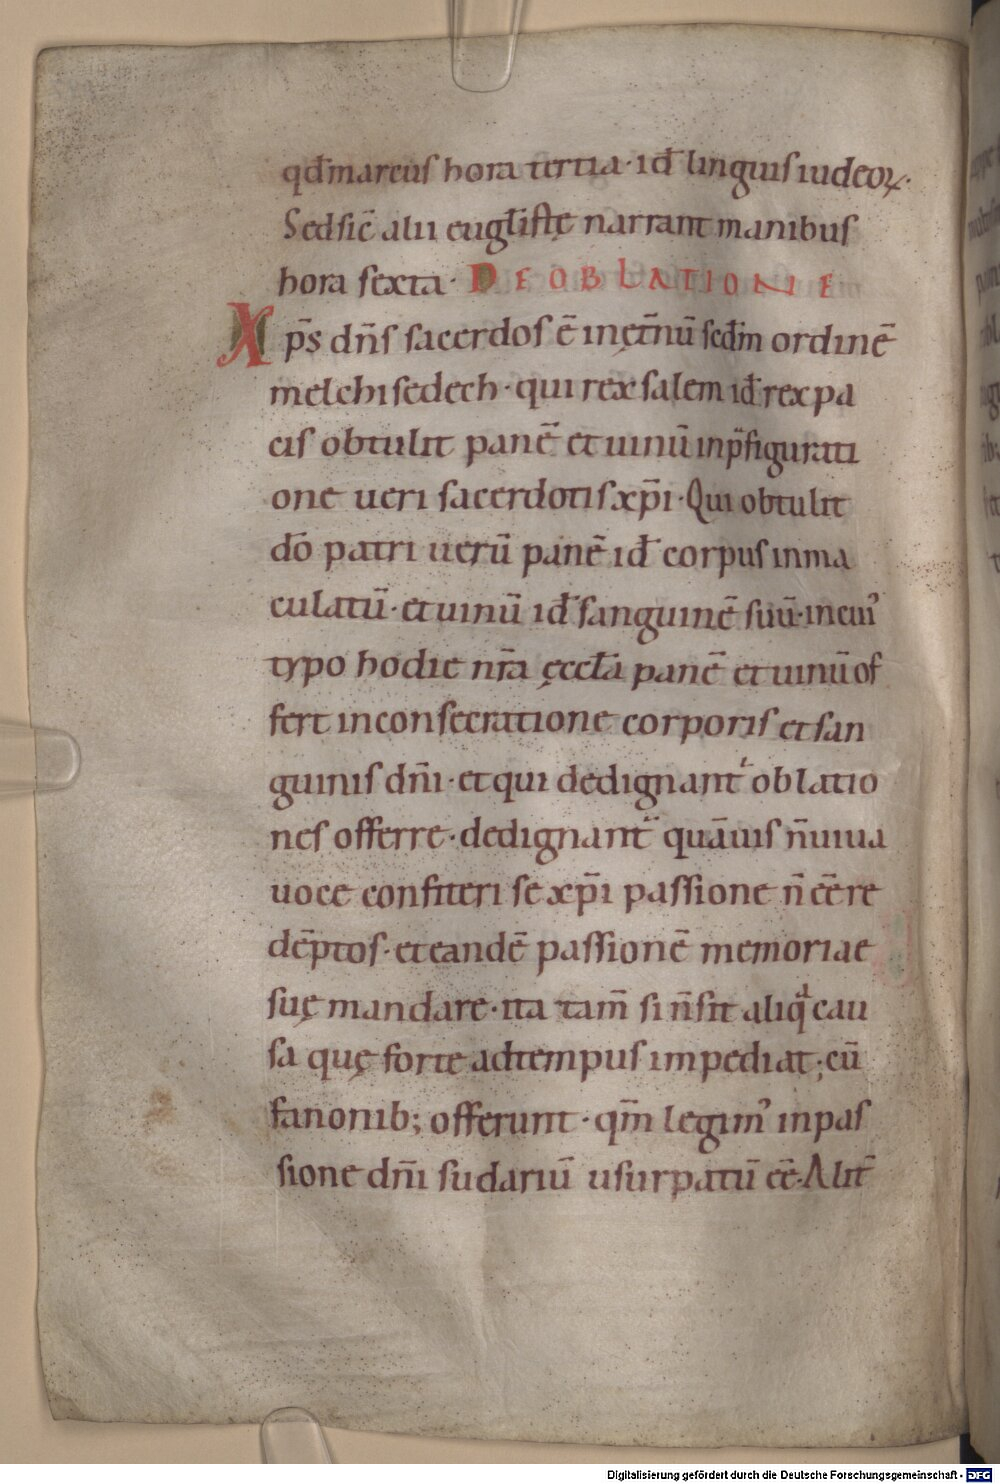 qđ marcus hora tertia · id̄ linguis iudeoꝝ·
Sed sic̄ alii eug̅listę narrant manibus
hora sexta · DE OBLATIONE
Xp̄s dn̄s sacerdos ē in ęt̄nū scd̄m ordinē
melchisedech · qui rex salem id̄ rex pa
cis obtulit panē et uinū in p̄figurati
one ueri sacerdotis xp̄i · Qui obtulit
dō patri uerū panē id̄ corpus inma
culatū · et uinū id̄ sanguinē suū · in cuiꝰ
typo hodie nr̄a ęccła panē et uinū of
fert in consecratione corporis et san
guinis dn̄i · et qui dedignant᷑ oblatio
nes offerre · dedignant᷑ quāuis n̄ uiua
uoce confiteri se xp̄i passione n̄ ēē re
dēptos · et eandē passionē memoriae
suę mandare · ita tam̄ si n̄ sit aliqͩ cau
sa quę forte ad tempus impediat ; cū
fanonib; offerunt · qm̄ legimꝰ in pas
sione dn̄i sudariū usurpatū ēē · Alit̄
Digitalisierung gefördert durch die Deutsche Forschungsgemeinschaft - DFG